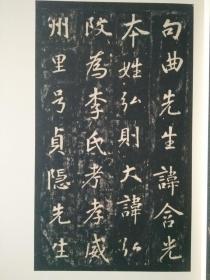 句曲先生諱含光
本姓弘則天諱弘
改為李氏考孝威
州里号貞隱先生